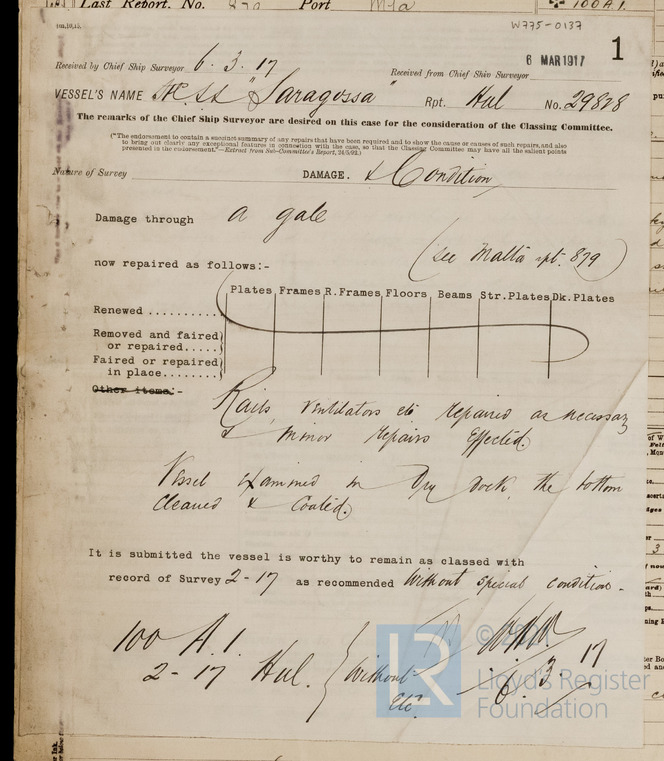 Last Report. No. 879 Port Mta 100A1.
W775-0137
6 MAR 1917
1
Received by Chief Ship Surveyor 6. 3. 17
Received from Chief Ship Surveyor
VESSEL'S NAME "Saragossa" Rpt. Hul No. 29878
The remarks of the Chief Ship Surveyor are desired on this case for the consideration of the Classing Committee.
("The endorsement to contain a succinct summary of any repairs that have been required and to show the cause or causes of such repairs, and also
to bring out clearly any exceptional features in connection with the case, so that the Classing Committee may have all the salient points
presented in the endorsement."—Extract from Sub-Committee's Report, 24/5/02.)
Nature of Survey DAMAGE. & Condition
Damage through a gale
now repaired as follows:- (see Malta rpt. 879)
Plates Frames R.Frames Floors Beams Str.Plates Dk.Plates
Renewed ..........
Removed and faired
or repaired.....
Faired or repaired
in place........
Other items:-
Rails ventilators etc repaired as necessary
& minor repairs effected.
Vessel examined in dry dock, the bottom
cleaned & coated.
It is submitted the vessel is worthy to remain as classed with
record of Survey 2-17 as recommended without special condition.
100 A.1.
2-17 Hul. { without
etc
6/3/17
© 2021
LR
Lloyd's Register
Foundation